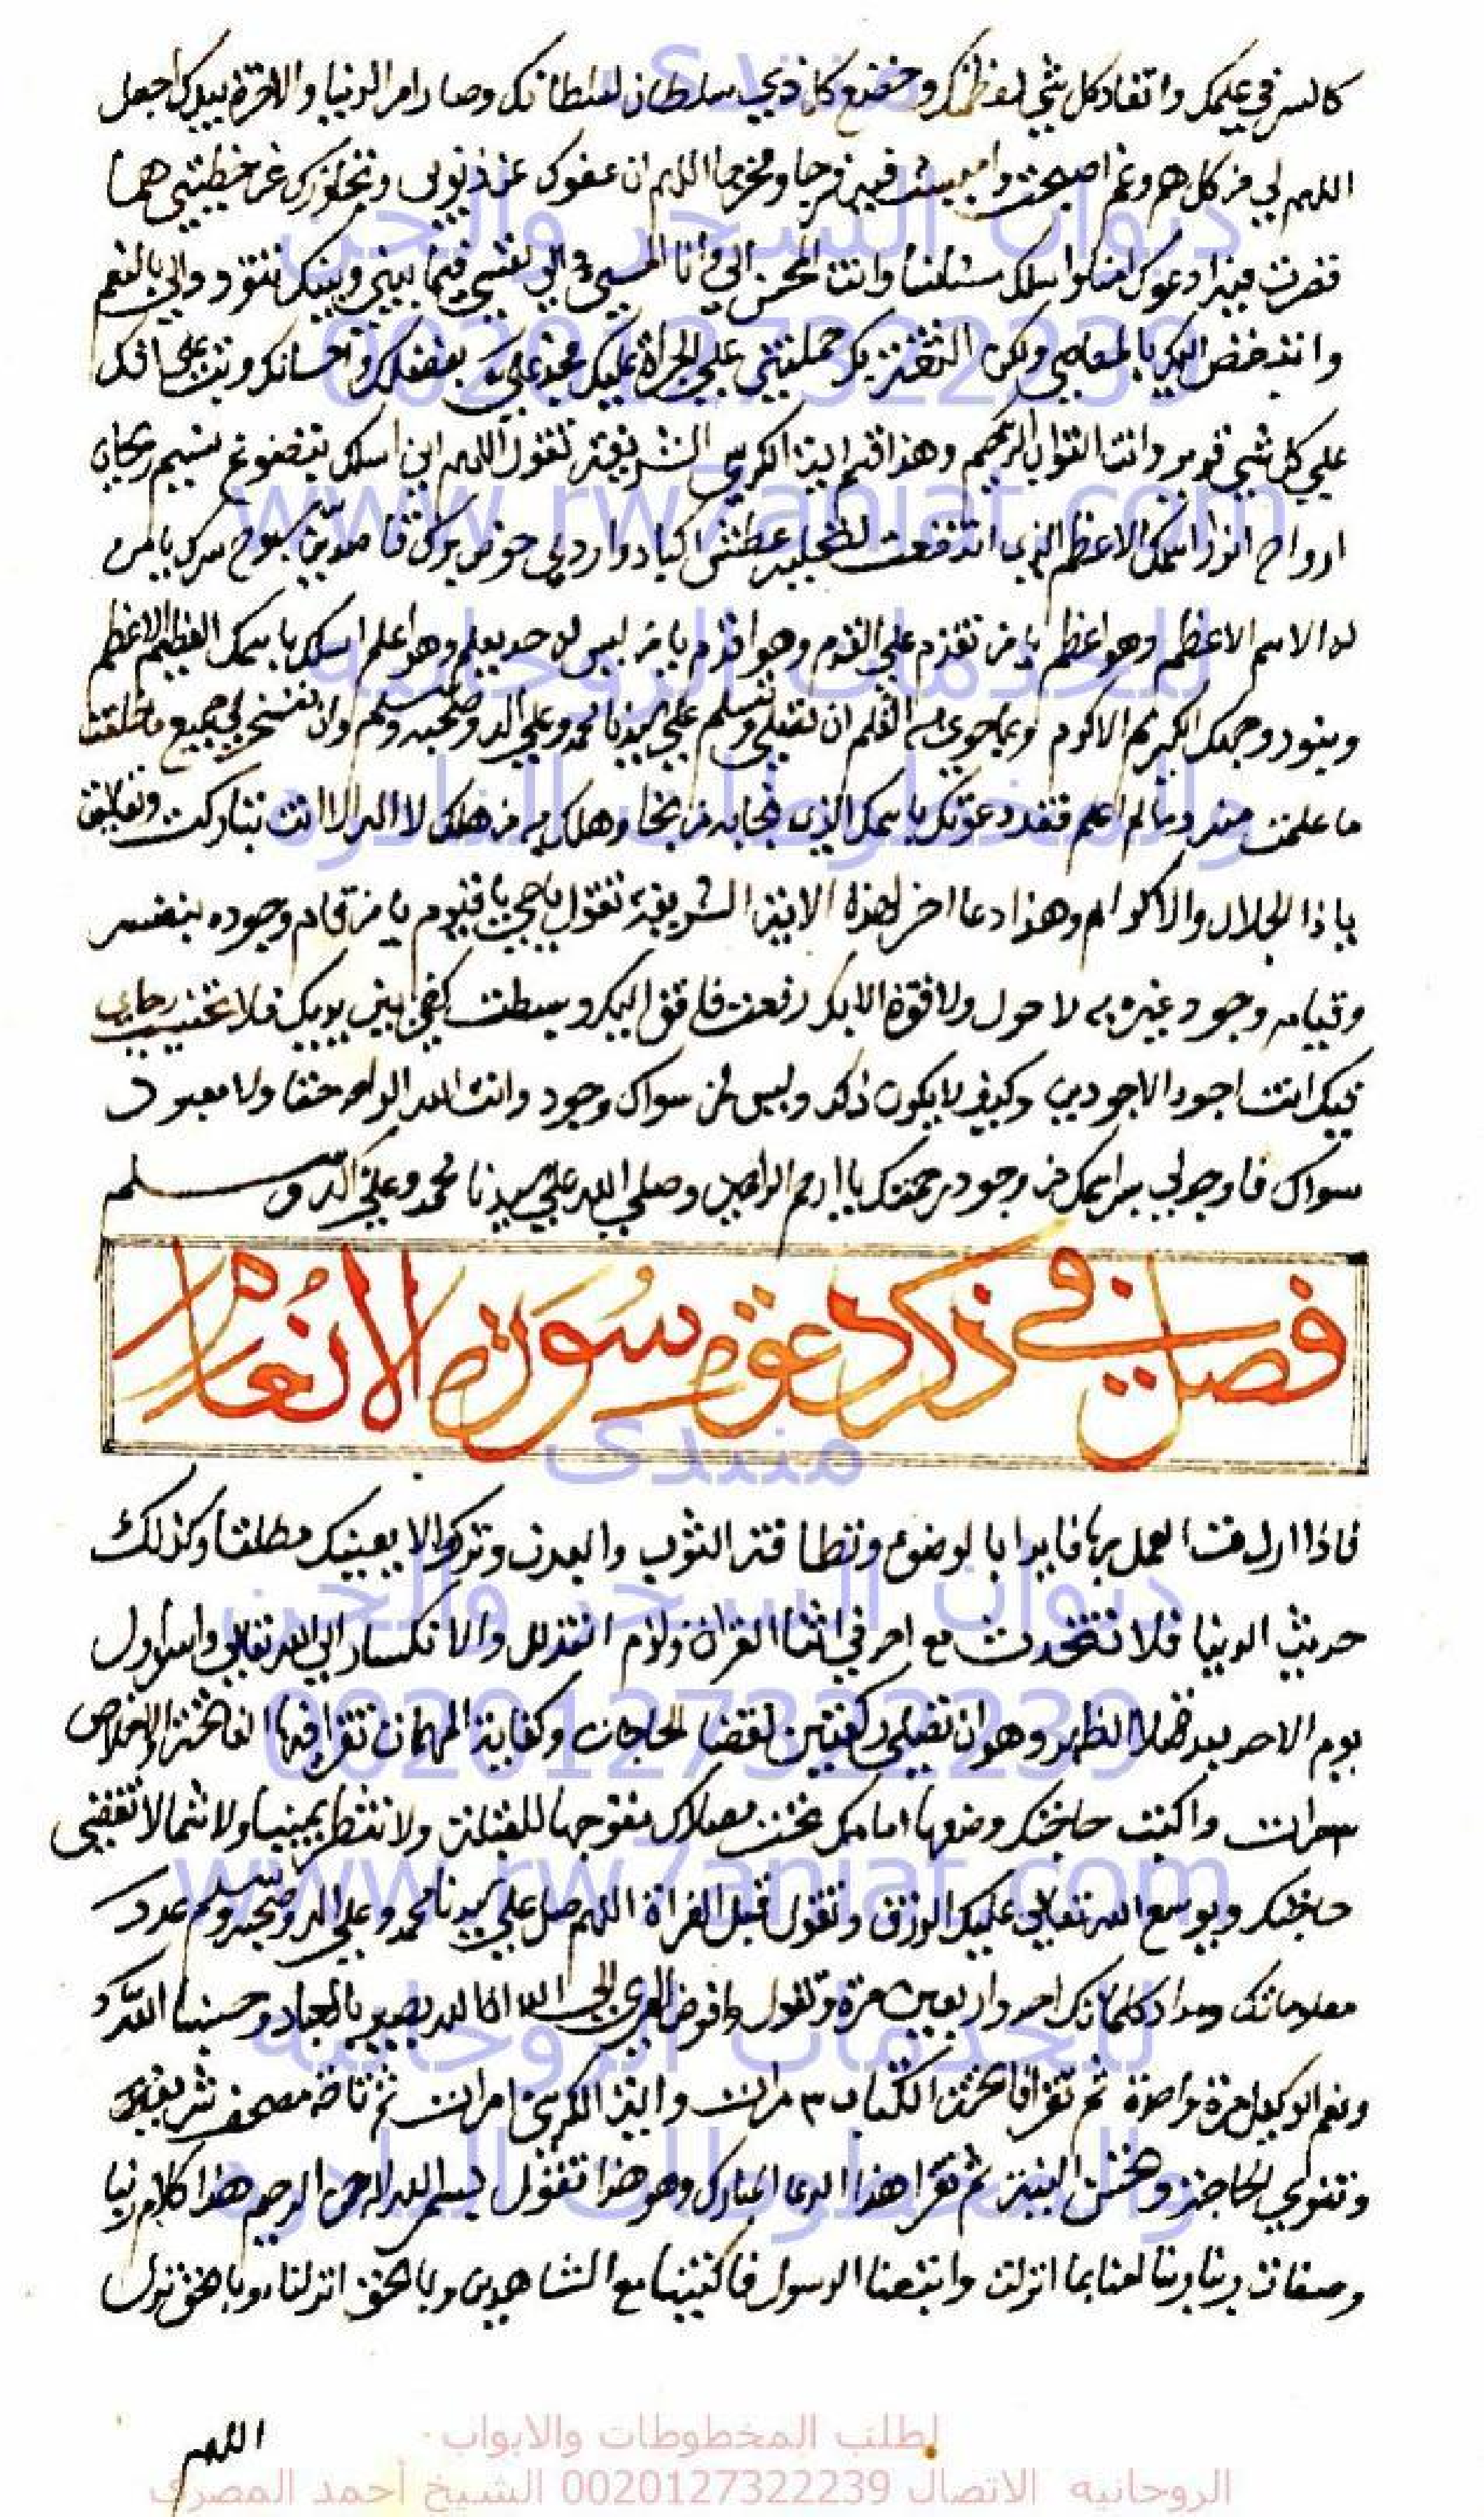 كالسر في علمك وانقاد كل شي لعظمتك وخضع كل ذي سلطان لسلطانك وصار امر الدنيا والاخرة بيدك اجعل
اللهم لي من كل هم وغم اصبحت وامسيت فيه فرجا ومخرجا اللهم ان عفوك عن ذنوبي وتجاوزك عن خطيئتي مما
قصرت فيه ادعوك امنا واسلك مستانسا وانت المحسن الي وانا المسي الي نفسي فيما بيني وبينك تتودد الي بالنعم
واتبغض اليك بالمعاصي ولكن الثقة بك حملتني علي الجراة عليك فجد علي بفضلك واحسانك وتب علي انك
علي كل شي قدير وانت التواب الرحيم وهذا قسم اية الكرسي الشريفة تقول اللهم اني اسلك نسيم ريحان
ارواح انوار اسمك الاعظم الذي عطش اكباد واردي حوض سرك يا من
له الاسم الاعظم وهو اعظم يا من تقدم علي القدم وهو اقدم يا من ليس له حد يعلم وهو اعلم اسلك باسمك العظيم الاعظم
وبنور وجهك الكريم الاكرم وبما جري به القلم ان تصلي وتسلم علي سيدنا محمد وعلي اله وصحبه وسلم وان تسخر لي جميع ما خلقت
ما علمت منه وما لم اعلم فقد دعوتك باسمك الذي نجا به من نجا وهلك به من هلك لا اله الا انت تباركت وتعاليت
يا ذا الجلال والاكرام وهذا دعا اخر لهذه الاية الشريفة تقول يا حي يا قيوم يا من قام وجوده بنفسه
وقيام وجود غيره به لا حول ولا قوة الا بك رفعت فاقتي اليك وبسطت كفي بين يديك فلا تخيب رجاي
فيك انت اجود الاجودين وكيف لا يكون ذلك وليس لمن سواك وجود وانت الله الواحد حقا ولا معبود
سواك فاوجد لي سر اسمك من وجود رحمتك يا ارحم الراحمين وصلي الله علي سيدنا محمد وعلي اله وسلم
فصل في ذكر دعوة سورة الانعام
فاذا اردت العمل بها فابدا بالوضوء ونظافة الثوب والبدن وترك ما لا يعنيك مطلقا وكذلك
حديث الدنيا فلا تتحدث مع احد في اثنا القراة ولازم التذلل والانكسار الي الله تعالي وابدا اول
يوم الاحد بعد صلاة الظهر وهو ان تصلي ركعتين لقضا الحاجات وكفاية المهمات تقرا فيها الفاتحة والاخلاص
مرات واكتب حاجتك وضعها امامك تحت مصلاك متوجها للقبلة ولا تنظر يمينا ولا شمالا تقضي
حاجتك ويوسع الله تعالي عليك الرزق وتقول قبل القراة اللهم صل علي سيدنا محمد وعلي اله وصحبه وسلم عدد
معلوماتك ومداد كلماتك احد واربعين مرة وتقول وافوض امري الى الله ان الله بصير بالعباد وحسبنا الله
ونعم الوكيل مرة واحدة ثم تقرا فاتحة الكتاب ٣ مرات واية الكرسي مرات ثم تاخذ مصحف شريف
وتنوي الحاجة وتحسن النية ثم تقرا هذا الدعا المبارك وهو هذا تقول بسم الله الرحمن الرحيم هذا كلام ربنا
وصفات ربنا ربنا امنا بما انزلت واتبعنا الرسول فاكتبنا مع الشاهدين وبالحق انزلناه وبالحق نزل
اللهم
منتدى
ديوان السحر والجن
0020127322239
www.rw7aniat.com
للخدمات الروحانيه
والمخطوطات النادره
منتدى
ديوان السحر والجن
0020127322239
www.rw7aniat.com
للخدمات الروحانيه
والمخطوطات النادره
لطلب المخطوطات والابواب
الروحانيه الاتصال 0020127322239 الشيخ أحمد المصرى